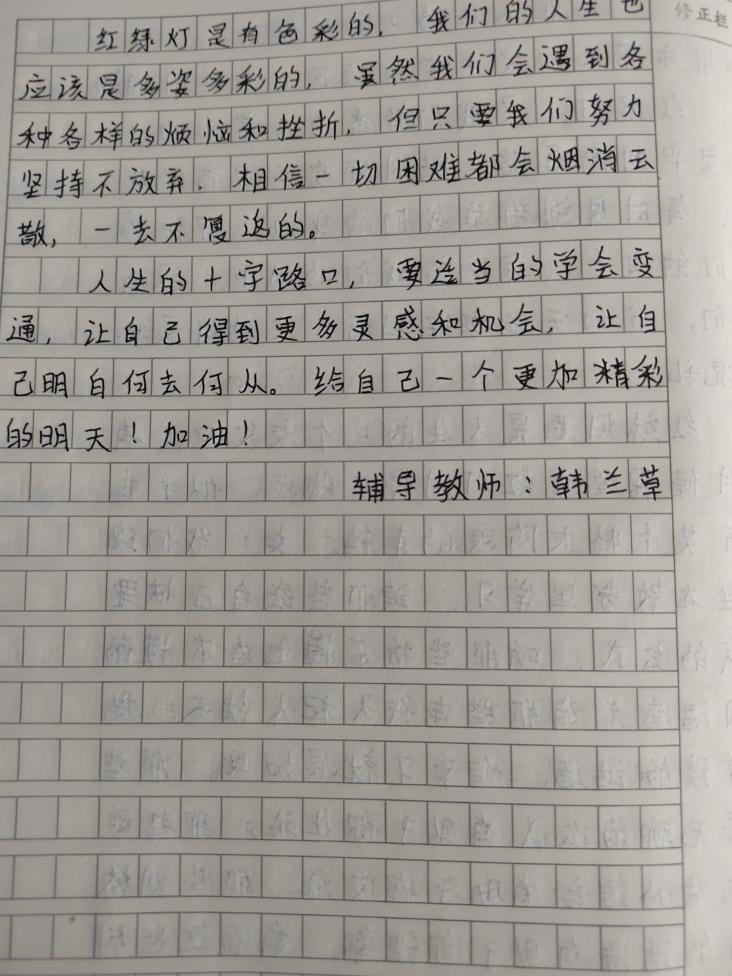 修正栏
红绿灯是有色彩的，我们的人生也
应该是多姿多彩的，虽然我们会遇到各
种各样的烦恼和挫折，但只要我们努力
坚持不放弃，相信一切困难都会烟消云
散，一去不复返的。
人生的十字路口，要适当的学会变
通，让自己得到更多灵感和机会，让自
己明白何去何从。给自己一个更加精彩
的明天！加油！
辅导教师：韩兰草